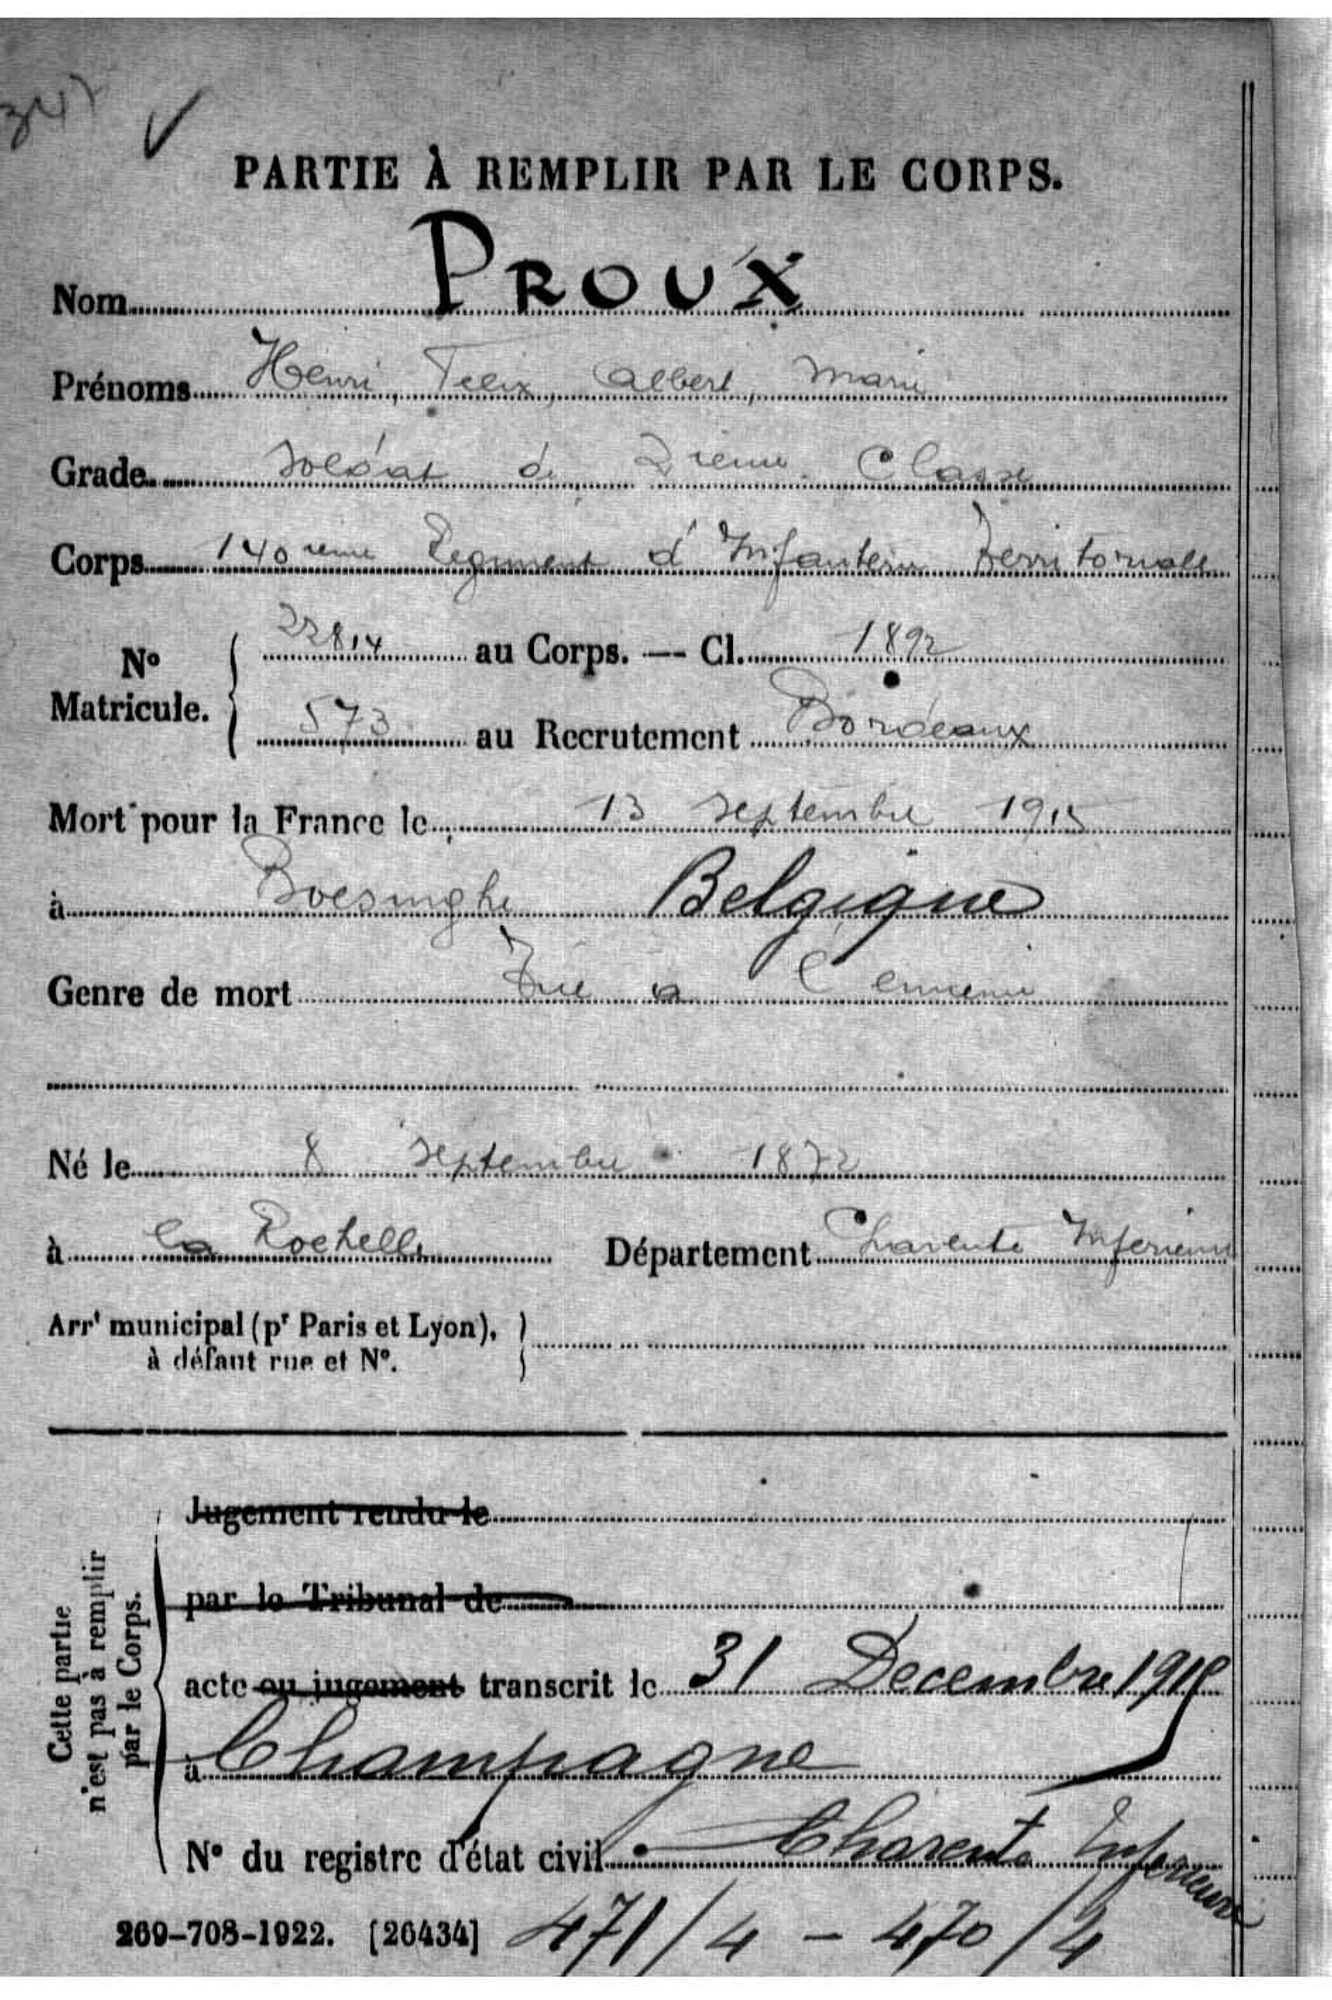 PARTIE À REMPLIR PAR LE CORPS.
Nom PROUX
Prénoms Henri, Felix, Albert, Marie
Grade Soldat de 2ieme Classe
Corps 140ieme Regiment d'Infanterie Territoriale
N° Matricule. 22814 au Corps. — Cl. 1892
573 au Recrutement Bordeaux
Mort pour la France le 13 Septembre 1915
à Boesinghe Belgique
Genre de mort Tué à l'ennemi
Né le 8 Septembre 1872
à La Rochelle Département Charente Inferieure
Arrt municipal (pr Paris et Lyon), à défaut rue et N°.
Cette partie n'est pas à remplir par le Corps.
Jugement rendu le
par le Tribunal de
acte ou jugement transcrit le 31 Decembre 1915
à Champagne
Charente Inferieure
N° du registre d'état civil
269-708-1922. [26434] 471/4 - 470/4